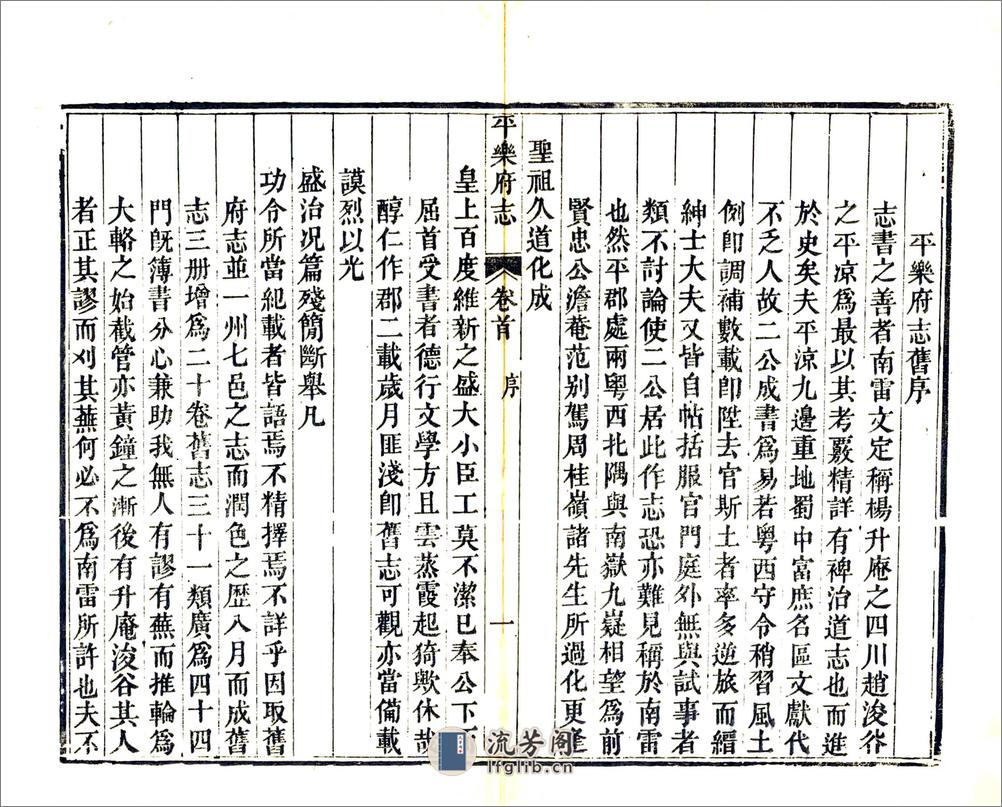 平樂府志舊序
志書之善者南雷文定稱楊升庵之四川趙浚谷
之平凉爲最以其考覈精詳有裨治道志也而進
於史矣夫平凉九邊重地蜀中富庶名區文獻代
不乏人故二公成書爲易若粵西守令稍習風土
例卽調補數載卽陞去官斯土者率多逆旅而縉
紳士大夫又皆自帖括服官門庭外無與試事者
類不討論使二公居此作志恐亦難見稱於南雷
也然平郡處兩粵西北隅與南嶽九嶷相望爲前
賢忠公澹菴范别駕周桂嶺諸先生所過化更逢
聖祖久道化成
平樂府志
卷首
序
一
皇上百度維新之盛大小臣工莫不潔已奉公下
屈首受書者德行文學方且雲蒸霞起猗歟休哉
醇仁作郡二載歲月匪淺卽舊志可觀亦當備載
謨烈以光
盛治况篇殘簡斷舉凡
功令所當紀載者皆語焉不精擇焉不詳乎因取舊
府志並一州七邑之志而潤色之歷八月而成舊
志三册增爲二十卷舊志三十一類廣爲四十四
門旣簿書分心兼助我無人有謬有蕪而推輪爲
大輅之始截管亦黃鐘之漸後有升庵浚谷其人
者正其謬而刈其蕪何必不爲南雷所許也夫不
流芳阁
lfglib.cn